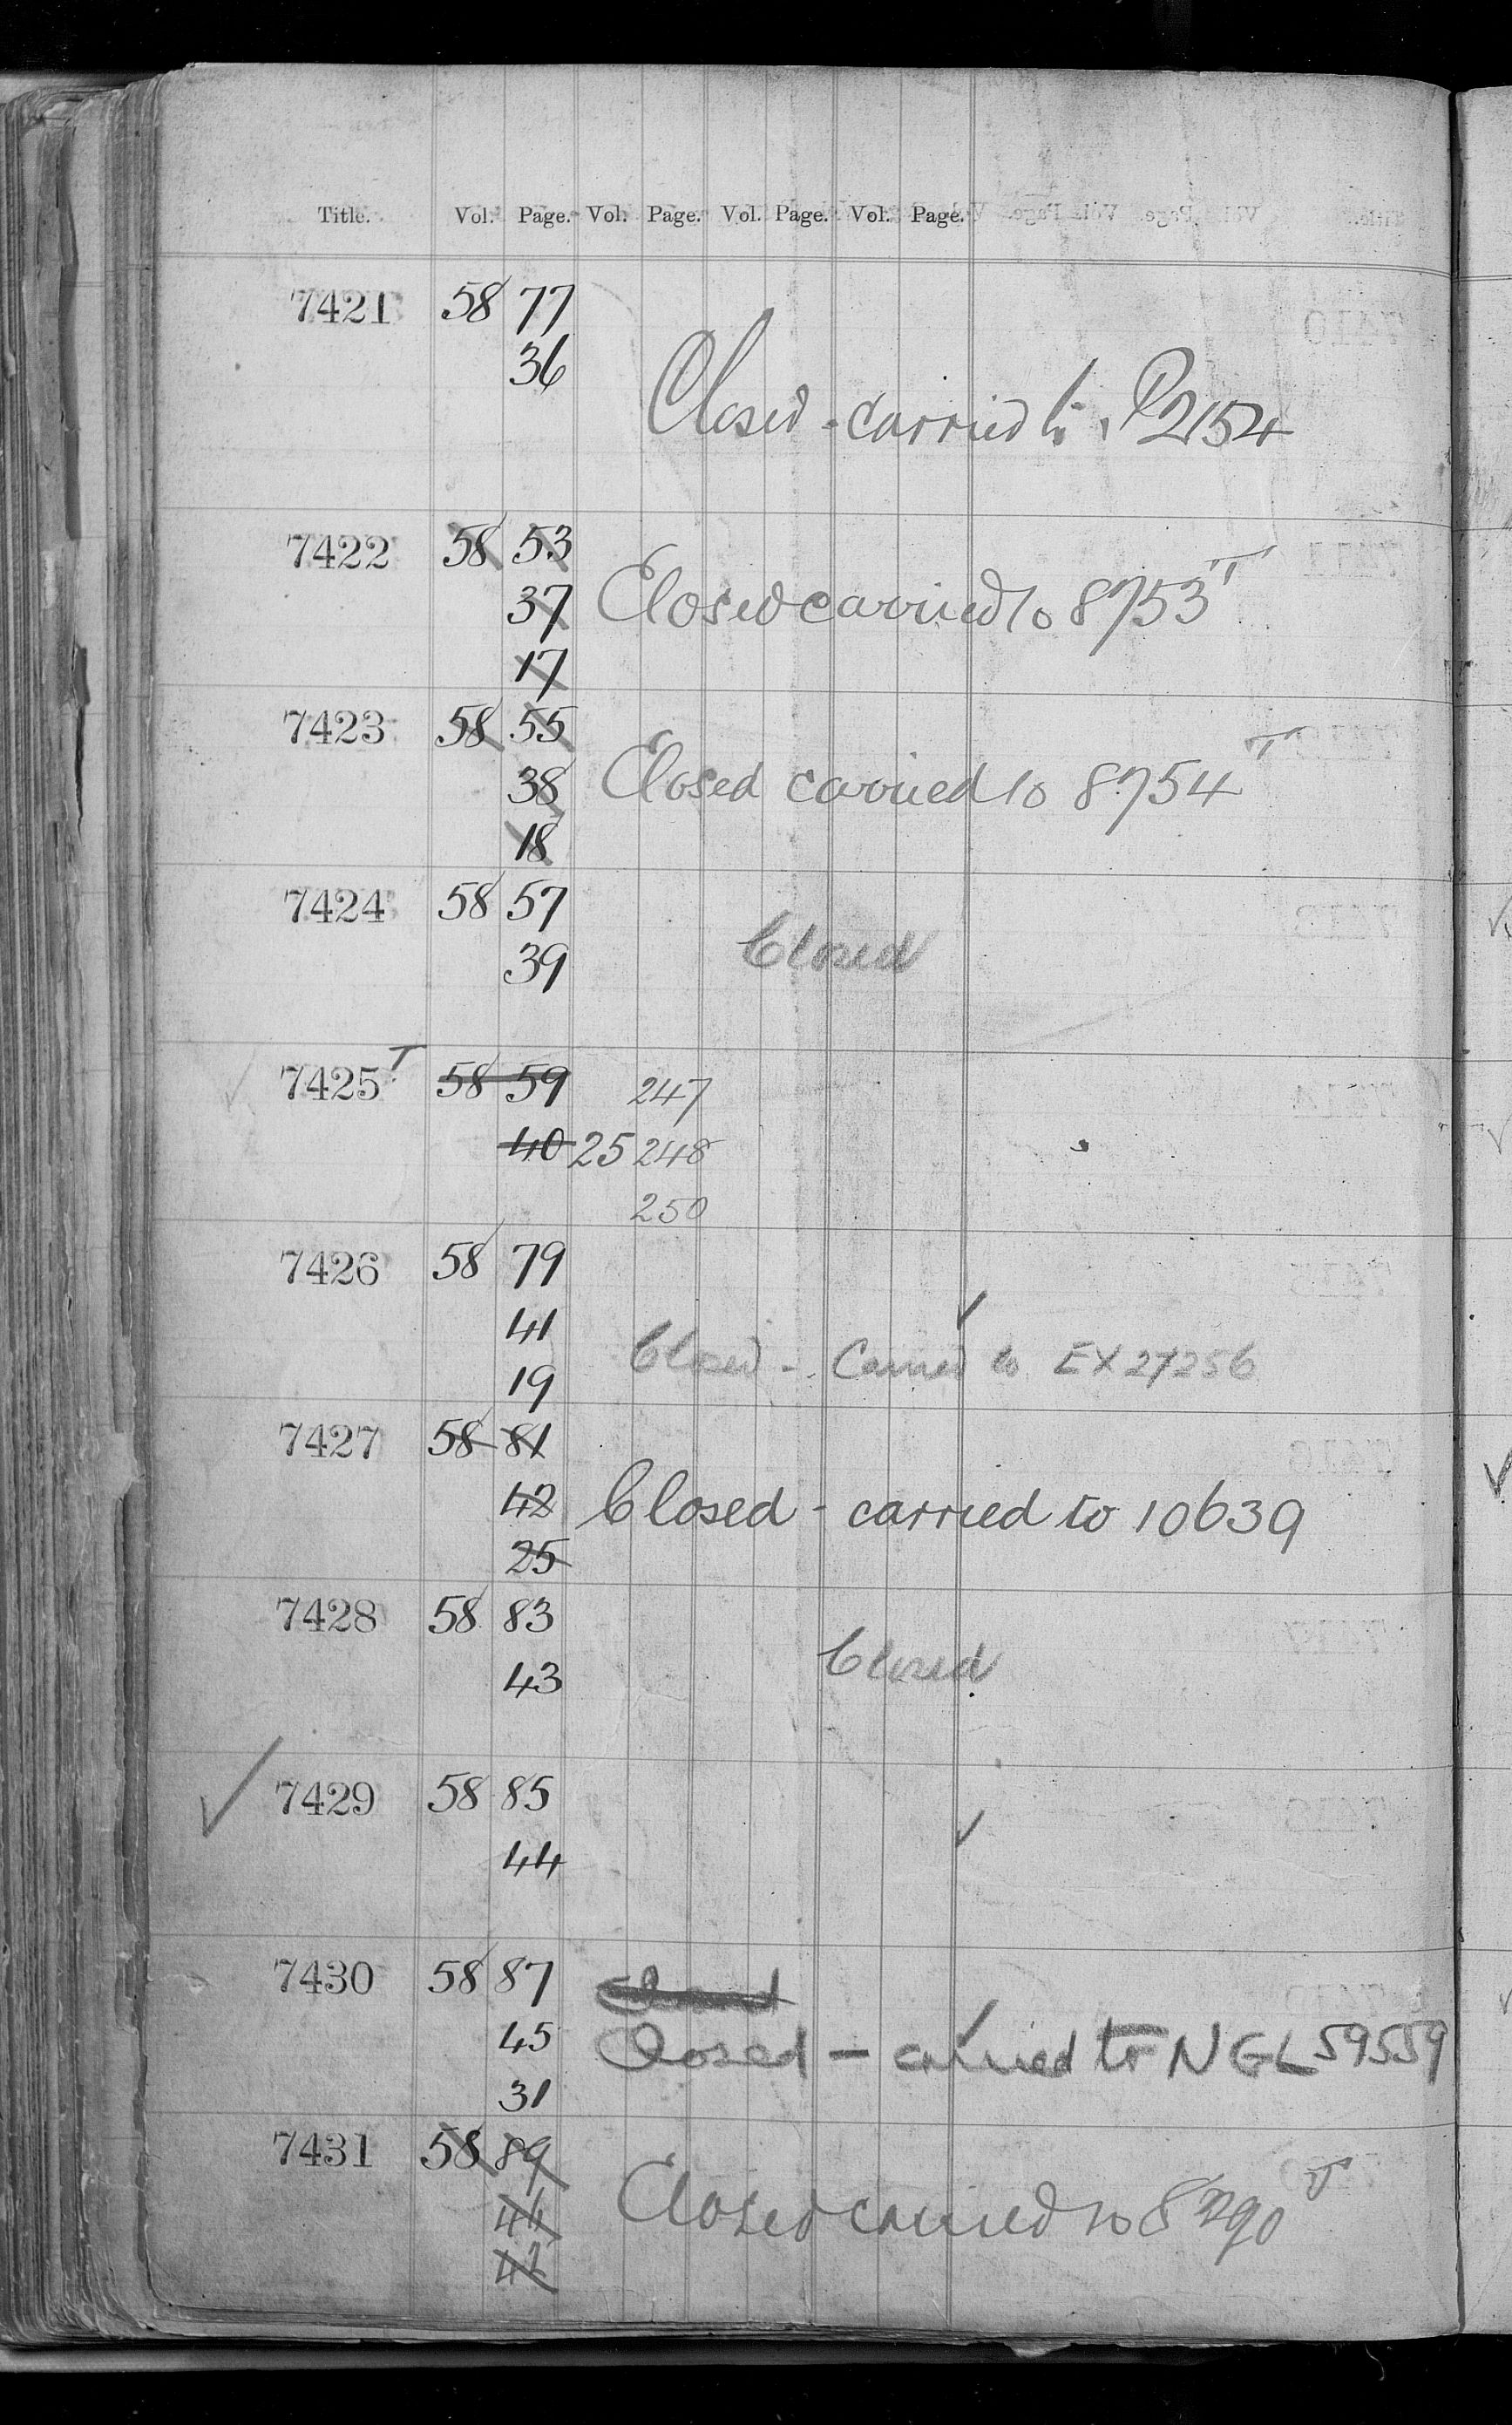 Title. Vol. Page. Vol. Page. Vol. Page. Vol. Page.
7421 58 77
36
Closed - carried to P2154
7422 58 53
37 Closed carried to 8753 T
17
7423 58 55
38 Closed carried to 8754 T
18
7424 58 57
Closed
39
7425 T 58 59 247
40 25 248
250
7426 58 79
41
Closed - Carried to EX27256
19
7427 58 81
42 Closed - carried to 10639
25
7428 58 83
Closed
43
7429 58 85
44
7430 58 87 Closed
45 Closed - carried to NGL 59559
31
7431 58 89
46 Closed carried to T
42